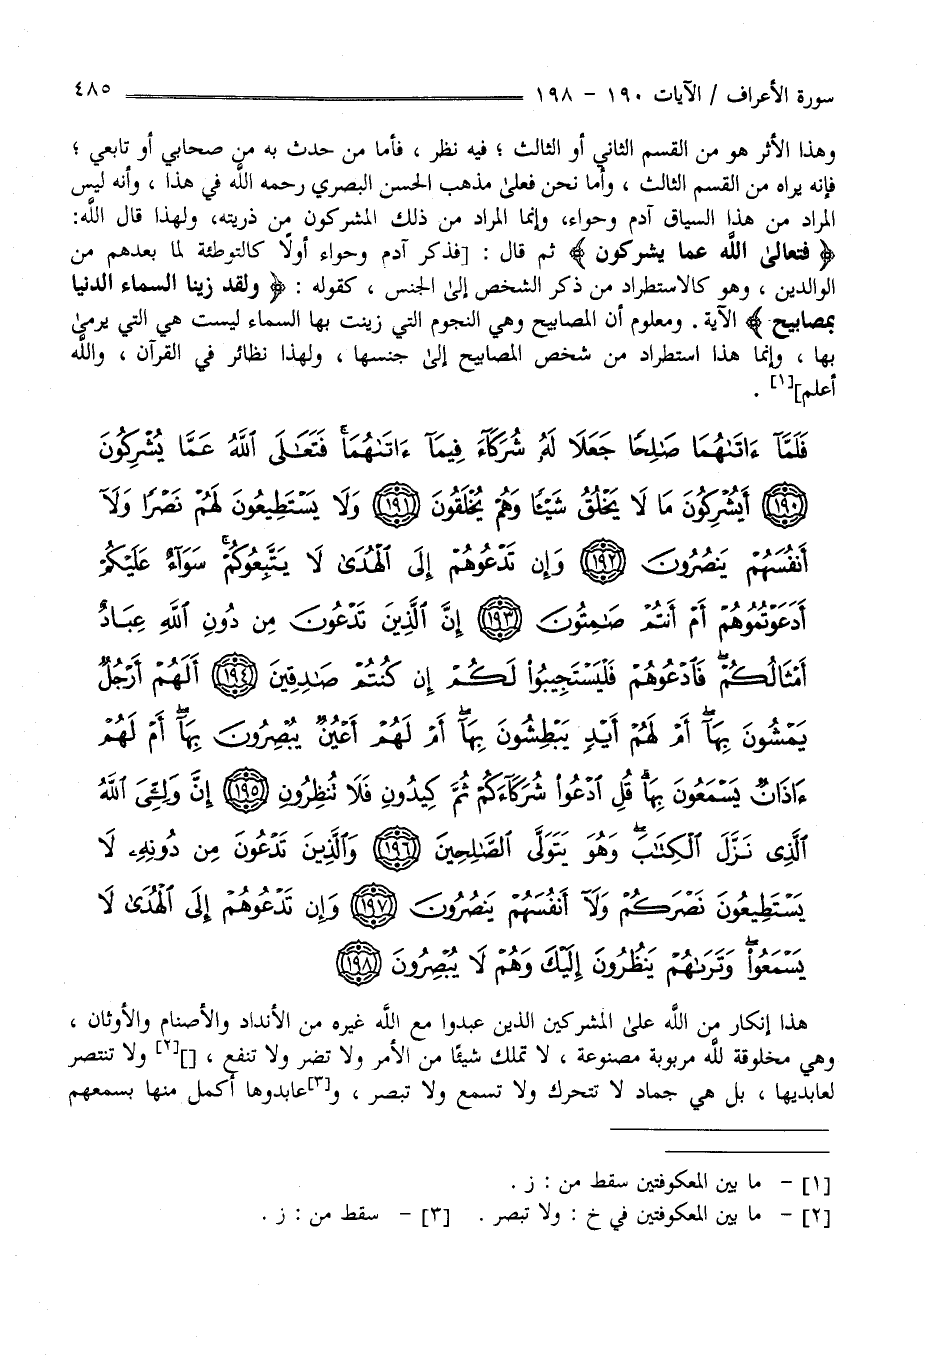 سورة الأعراف / الآيات ١٩٠ - ١٩٨ ٤٨٥
وهذا الأثر هو من القسم الثاني أو الثالث ؛ فيه نظر ، فأما من حدث به من صحابي أو تابعي ؛
فإنه يراه من القسم الثالث ، وأما نحن فعلىٰ مذهب الحسن البصري رحمه اللَّه في هذا ، وأنه ليس
المراد من هذا السياق آدم وحواء، وإنما المراد من ذلك المشركون من ذريته، ولهذا قال اللَّه:
﴿ فتعالىٰ اللَّه عما يشركون ﴾ ثم قال : [فذكر آدم وحواء أولًا كالتوطئة لما بعدهم من
الوالدين ، وهو كالاستطراد من ذكر الشخص إلىٰ الجنس ، كقوله : ﴿ ولقد زينا السماء الدنيا
بمصابيح ﴾ الآية . ومعلوم أن المصابيح وهي النجوم التي زينت بها السماء ليست هي التي يرمىٰ
بها ، وإنما هذا استطراد من شخص المصابيح إلىٰ جنسها ، ولهذا نظائر في القرآن ، واللَّه
أعلم][١] .
فَلَمَّآ ءَاتَىٰهُمَا صَٰلِحًا جَعَلَا لَهُۥ شُرَكَآءَ فِيمَآ ءَاتَىٰهُمَا ۚ فَتَعَٰلَى ٱللَّهُ عَمَّا يُشْرِكُونَ
(١٩٠) أَيُشْرِكُونَ مَا لَا يَخْلُقُ شَيْـًٔا وَهُمْ يُخْلَقُونَ (١٩١) وَلَا يَسْتَطِيعُونَ لَهُمْ نَصْرًا وَلَآ
أَنفُسَهُمْ يَنصُرُونَ (١٩٢) وَإِن تَدْعُوهُمْ إِلَى ٱلْهُدَىٰ لَا يَتَّبِعُوكُمْ ۚ سَوَآءٌ عَلَيْكُمْ
أَدَعَوْتُمُوهُمْ أَمْ أَنتُمْ صَٰمِتُونَ (١٩٣) إِنَّ ٱلَّذِينَ تَدْعُونَ مِن دُونِ ٱللَّهِ عِبَادٌ
أَمْثَالُكُمْ ۖ فَٱدْعُوهُمْ فَلْيَسْتَجِيبُوا۟ لَكُمْ إِن كُنتُمْ صَٰدِقِينَ (١٩٤) أَلَهُمْ أَرْجُلٌ
يَمْشُونَ بِهَآ ۖ أَمْ لَهُمْ أَيْدٍ يَبْطِشُونَ بِهَآ ۖ أَمْ لَهُمْ أَعْيُنٌ يُبْصِرُونَ بِهَآ ۖ أَمْ لَهُمْ
ءَاذَانٌ يَسْمَعُونَ بِهَا ۗ قُلِ ٱدْعُوا۟ شُرَكَآءَكُمْ ثُمَّ كِيدُونِ فَلَا تُنظِرُونِ (١٩٥) إِنَّ وَلِـِّۧىَ ٱللَّهُ
ٱلَّذِى نَزَّلَ ٱلْكِتَٰبَ ۖ وَهُوَ يَتَوَلَّى ٱلصَّٰلِحِينَ (١٩٦) وَٱلَّذِينَ تَدْعُونَ مِن دُونِهِۦ لَا
يَسْتَطِيعُونَ نَصْرَكُمْ وَلَآ أَنفُسَهُمْ يَنصُرُونَ (١٩٧) وَإِن تَدْعُوهُمْ إِلَى ٱلْهُدَىٰ لَا
يَسْمَعُوا۟ ۖ وَتَرَىٰهُمْ يَنظُرُونَ إِلَيْكَ وَهُمْ لَا يُبْصِرُونَ (١٩٨)
هذا إنكار من اللَّه علىٰ المشركين الذين عبدوا مع اللَّه غيره من الأنداد والأصنام والأوثان ،
وهي مخلوقة للَّه مربوبة مصنوعة ، لا تملك شيئًا من الأمر ولا تضر ولا تنفع ، [][٢] ولا تنتصر
لعابديها ، بل هي جماد لا تتحرك ولا تسمع ولا تبصر ، و[٣]عابدوها أكمل منها بسمعهم
[١] - ما بين المعكوفتين سقط من : ز .
[٢] - ما بين المعكوفتين في خ : ولا تبصر . [٣] - سقط من : ز .